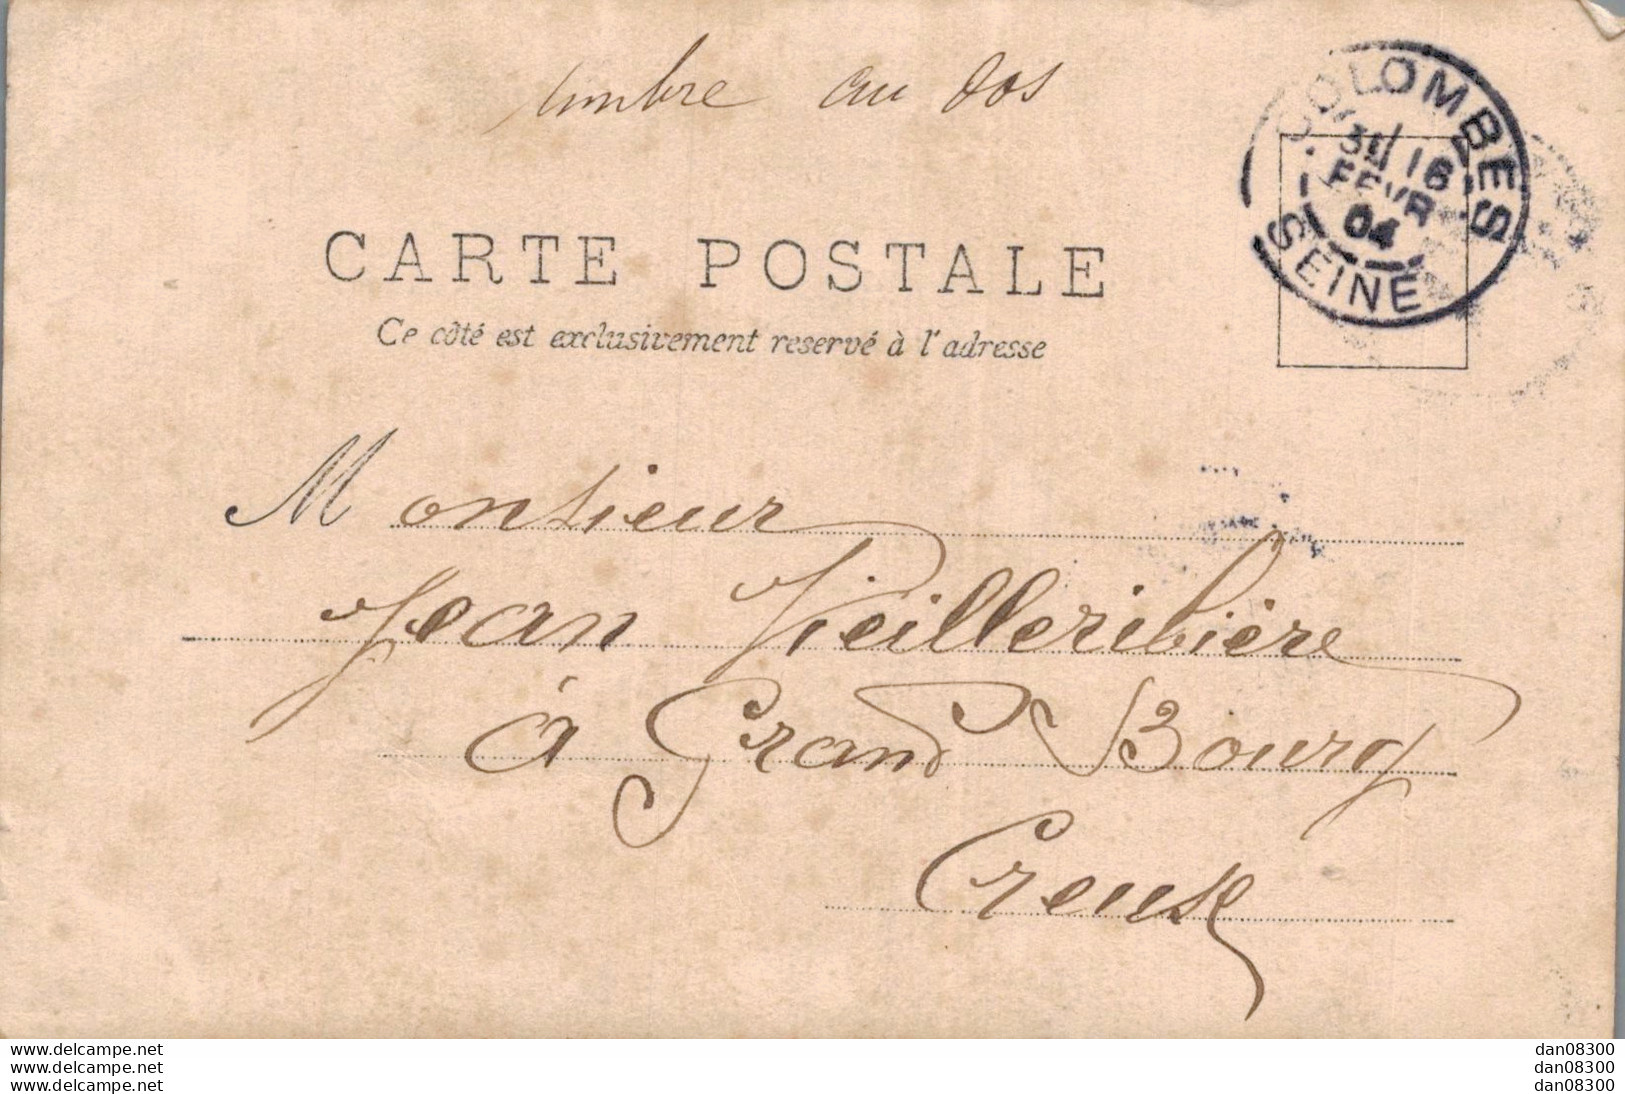 timbre au dos
COLOMBES
3E 16
FEVR
04
SEINE
CARTE POSTALE
Ce côté est exclusivement reservé à l'adresse
Monsieur
Jean Vieilleribière
à Grand Bourg
Creuse
www.delcampe.net
www.delcampe.net
www.delcampe.net
dan08300
dan08300
dan08300